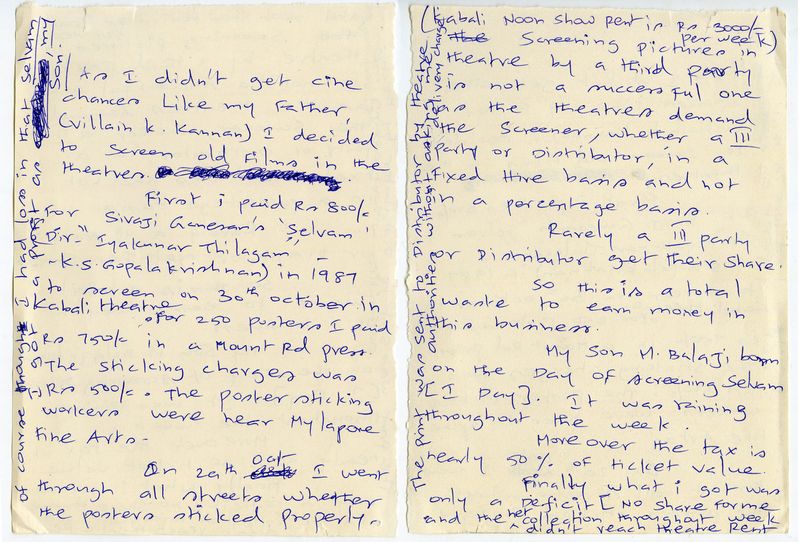 As I didn't get cine
chances Like my Father,
(villain K. Kannan) I decided
to screen old Films in the
theatres.
First i paid Rs 800/-
For Sivaji Ganesan's "Selvam"
Dir- "Iyakunar Thilagam" -
- K.S. Gopalakrishnan) in 1987
to screen on 30th october in
Kabali theatre.
For 250 posters I paid
Rs 750/- in a Mount Rd press.
The sticking charges was
Rs 500/-. The poster sticking
workers were near Mylapore
Fine Arts.
On 29th Oct I went
through all streets whether
the posters sticked properly.
of course I had loss in that Selvam
I got a profit as my
Son!
(Kabali Noon Show Rent is Rs 3000/-
per week)
Screening pictures in
theatre by a third party
is not a successful one
as the theatres demand
the Screener, whether a III
party or Distributor, in a
Fixed Hire basis and not
in a percentage basis.
Rarely a III party
or Distributor get their Share.
So this is a total
waste to earn money in
this business.
My Son M. Balaji born
on the Day of screening Selvam
[I Day]. It was raining
throughout the week.
More over the tax is
nearly 50% of ticket value.
Finally what i got was
only a Deficit [No share for me
and the net collection throughout week
didn't reach theatre Rent
The print was sent to Distributor by theatre
authorities without asking me
delivery charges